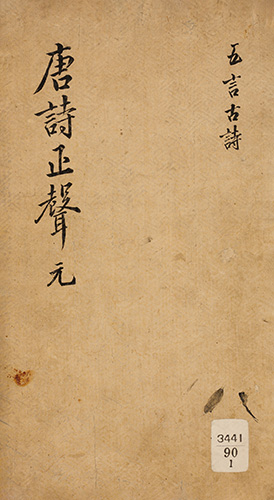 五言古詩
唐詩正聲 元
八
3441
90
1